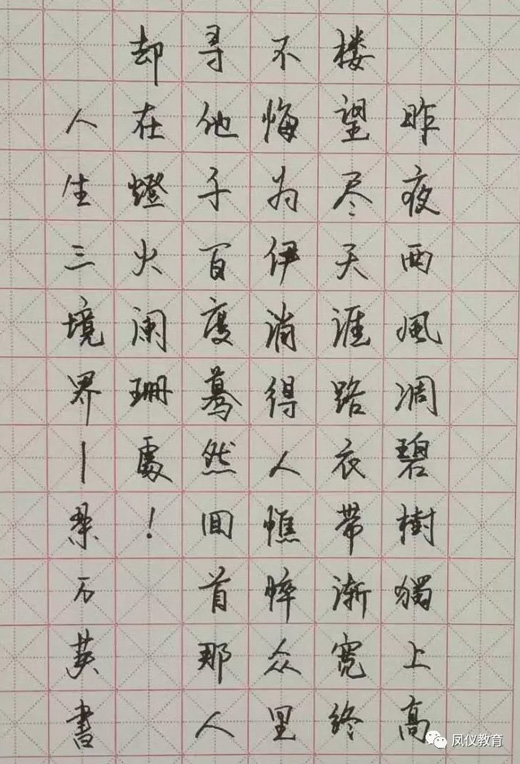 昨夜西风凋碧樹獨上高
楼望尽天涯路衣带渐宽终
不悔为伊消得人憔悴众里
寻他千百度蓦然回首那人
却在燈火阑珊處！
人生三境界—桑万英書
凤仪教育